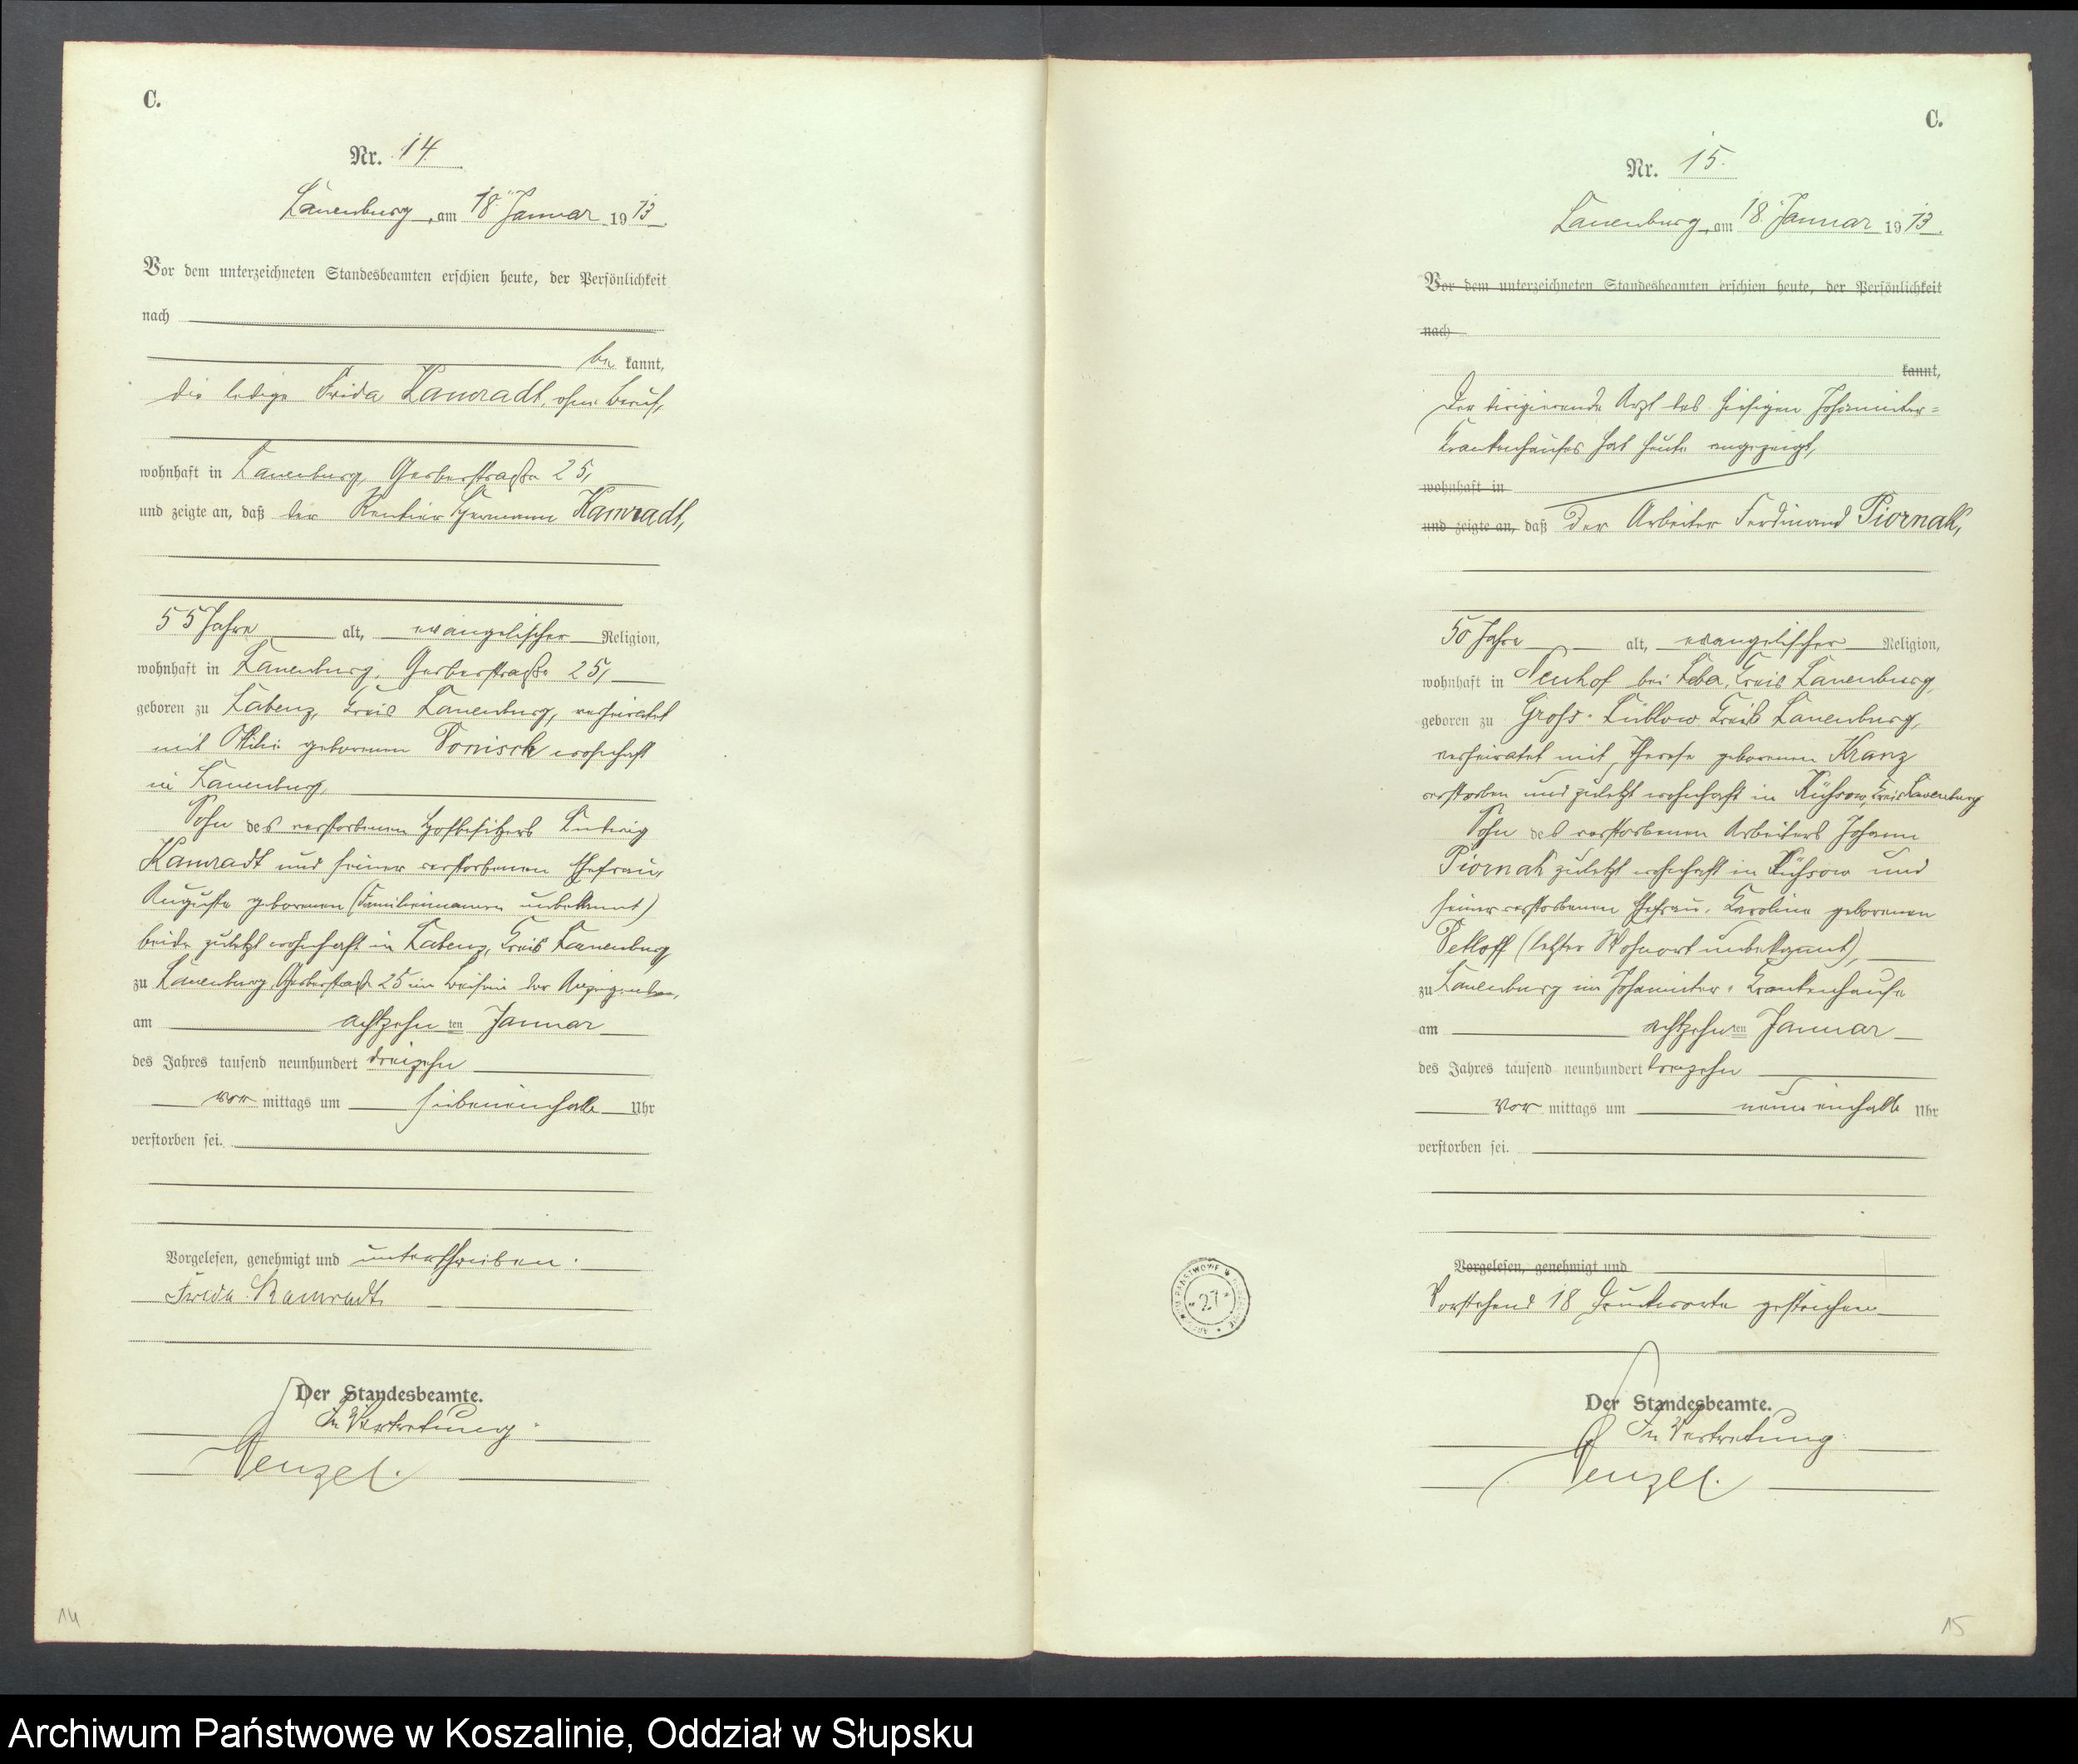 C.
Nr. 14.
Lauenburg, am 18. Januar 1913.
Vor dem unterzeichneten Standesbeamten erschien heute, der Persönlichkeit
nach
be kannt,
die ledige Frida Kamradt, ohne Beruf,
wohnhaft in Lauenburg, Gerberstraße 25,
und zeigte an, daß der Rentier Hermann Kamradt,
55 Jahre alt, evangelischer Religion,
wohnhaft in Lauenburg, Gerberstraße 25,
geboren zu Labenz, Kreis Lauenburg, verheiratet
mit geborenen wohnhaft
in Lauenburg,
Sohn des verstorbenen Hofbesitzers Ludwig
Kamradt und seiner verstorbenen Ehefrau,
Auguste geborenen (Familienname unbekannt)
beide zuletzt wohnhaft in Labenz, Kreis Lauenburg,
zu Lauenburg Gerberstraße 25 im Beisein der Anzeigenden,
am achtzehn ten Januar
des Jahres tausend neunhundert dreizehn
vor mittags um siebeneinhalb Uhr
verstorben sei.
Vorgelesen, genehmigt und unterschrieben.
Frida Kamradt.
Der Standesbeamte.
In Vertretung.
Wenzel.
14
C.
Nr. 15.
Lauenburg, am 18. Januar 1913.
Vor dem unterzeichneten Standesbeamten erschien heute, der Persönlichkeit
nach
kannt,
Der dirigierende Arzt des hiesigen Johanniter-
Krankenhauses hat heute angezeigt,
wohnhaft in
und zeigte an, daß der Arbeiter Ferdinand Piornak,
50 Jahre alt, evangelischer Religion,
wohnhaft in Neuhof bei Leba, Kreis Lauenburg,
geboren zu Gross-Lüblow Kreis Lauenburg,
verheiratet mit Therese geborenen Kranz
verstorben und zuletzt wohnhaft in Kreis Lauenburg
Sohn des verstorbenen Arbeiters Johann
Piornak zuletzt wohnhaft in und
seiner verstorbenen Ehefrau, Karoline geborenen
(letzter Wohnort unbekannt),
zu Lauenburg im Johanniter-Krankenhause
am achtzehn ten Januar
des Jahres tausend neunhundert dreizehn
vor mittags um neuneinhalb Uhr
verstorben sei.
Vorgelesen, genehmigt und
Vorstehend 18 Druckworte gestrichen.
Der Standesbeamte.
In Vertretung.
Wenzel.
27
15
Archiwum Państwowe w Koszalinie, Oddział w Słupsku